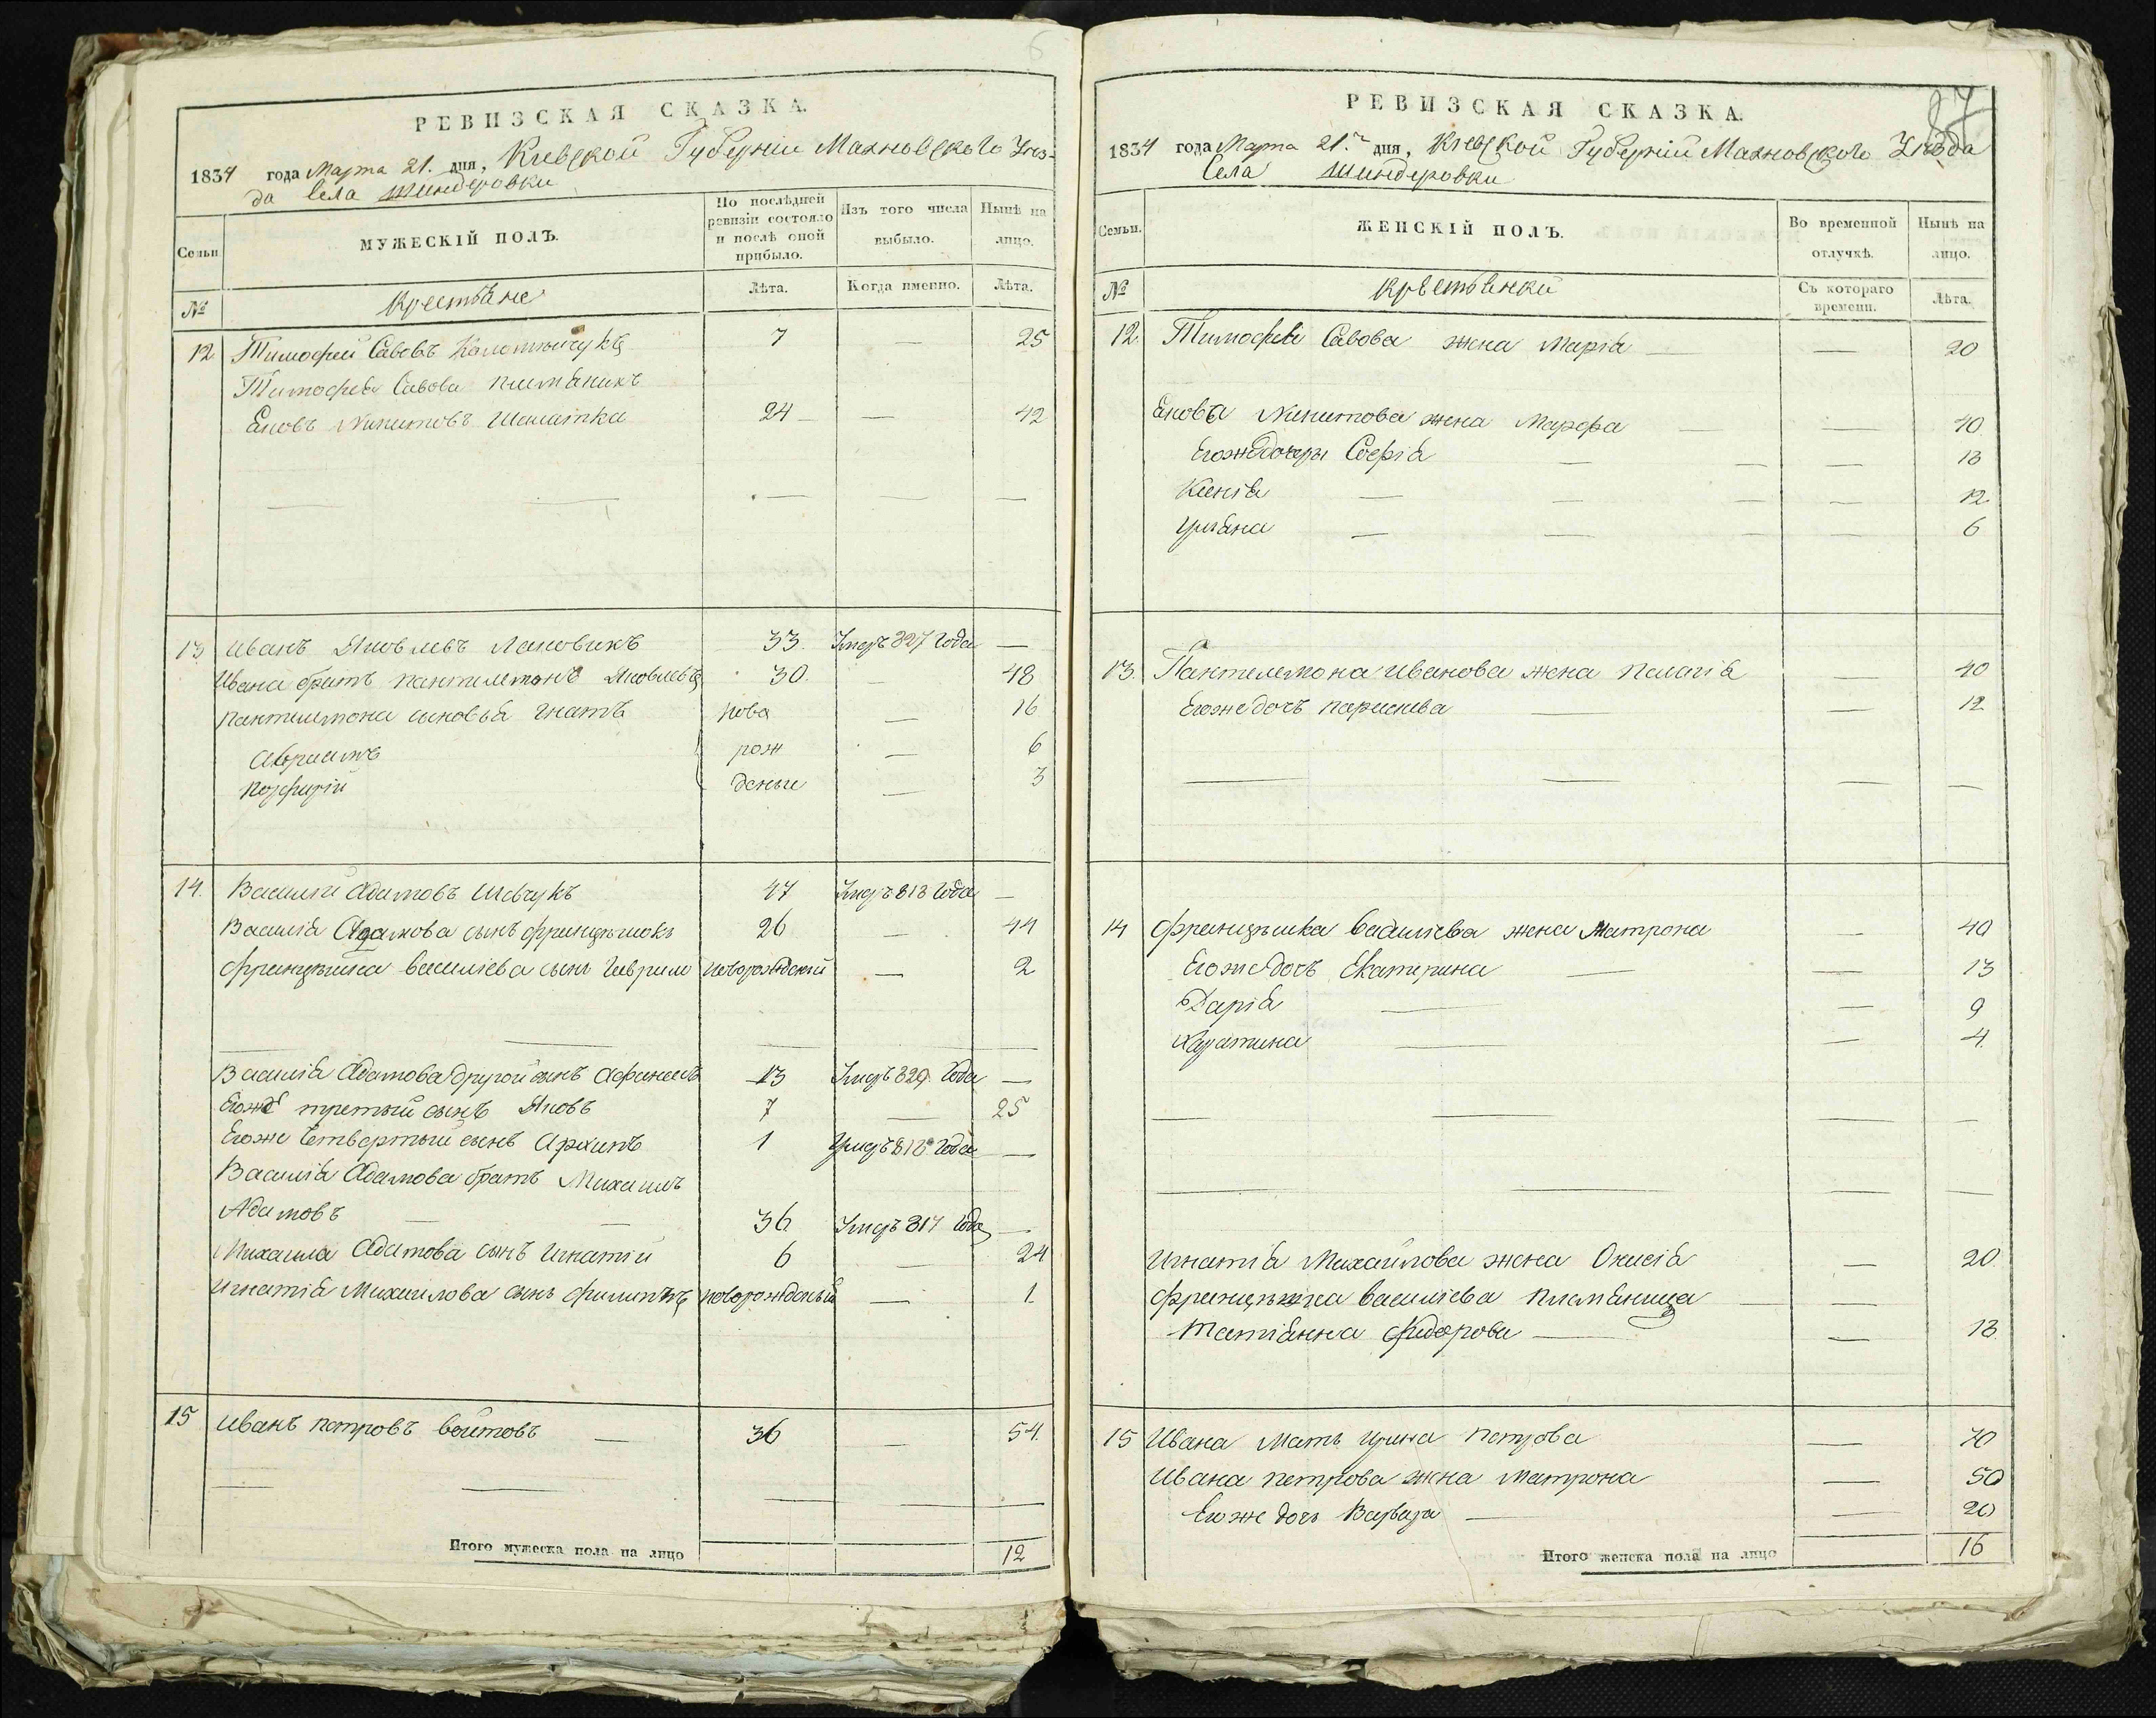 6
РЕВИЗСКАЯ СКАЗКА.
1834 года Марта 21. дня, Кіевской Губерніи Махновского Уез-
да Села Шиндеровки
Семьи
МУЖЕСКІЙ ПОЛЪ.
По послѣдней ревизіи состояло и послѣ оной прибыло.
Изъ того числа выбыло.
Нынѣ на лицо.
№
Крестьяне
Лѣта.
Когда именно.
Лѣта.
12 Тимофей Савовъ 7 — 25
Тимофея Савова племяникъ
Яковъ Никитовъ 24 — 42
13 Иванъ Яковлевъ Лановикъ 33. Умеръ 827 Года —
Ивана братъ Пантилемонъ Яковлевъ 30. — 48
Пантилемона сыновья Игнатъ ново — 16
Авраамъ рож — 6
Порфирій деные — 3
14. Василій Адамовъ Шевчукъ 47 Умеръ 818 Года —
Василія Адамова сынъ Францышокъ 26 — 44
Францышка Василіева сынъ Гаврило новорожденый — 2
Василія Адамова другой сынъ Афанасъ 13 Умеръ 829 Года —
Егоже третый сынъ Яковъ 7 — 25
Егоже Четвертый сынъ Архипъ 1 Умеръ 818 Года —
Василія Адамова братъ Михаилъ
Адамовъ — — 36 Умеръ 817 Года —
Михаила Адамова сынъ Игнатій 6 — 24
Игнатія Михаилова сынъ Филипъ новорожденый — 1.
15 Иванъ Петровъ Войтовъ — 36 — 54.
Итого мужеска пола на лицо 12
87
РЕВИЗСКАЯ СКАЗКА.
1834 года Марта 21.го дня, Кіевской Губерніи Махновского Уезда
Села Шиндеровки
Семьи.
ЖЕНСКІЙ ПОЛЪ.
Во временной отлучкѣ.
Нынѣ на лицо.
№
Крестьянки
Съ котораго времени.
Лѣта.
12. Тимофея Савова жена Марія — — 20
Якова Никитова жена Марфа — — 40.
Егоже дочеры Софія — — — 18
Ксенія — — — — 12.
Уліяна — — — — 6
13. Пантилемона Иванова жена Палагія — 40
Егоже дочъ Параскева — — 12
14 Францышка Василіева жена Матрона — 40
Егоже дочъ Екатерина — — 13
Дарія — — 9
— — 4.
Игнатія Михайлова жена — 20
Францышка Василіева племяница — —
Татіянна Фидорова — — 18.
15 Ивана Мать Ирина Петрова — 70
Ивана Петрова жена Матрона — 50
Егоже дочь Варвара — — 20
Итого женска пола на лицо 16